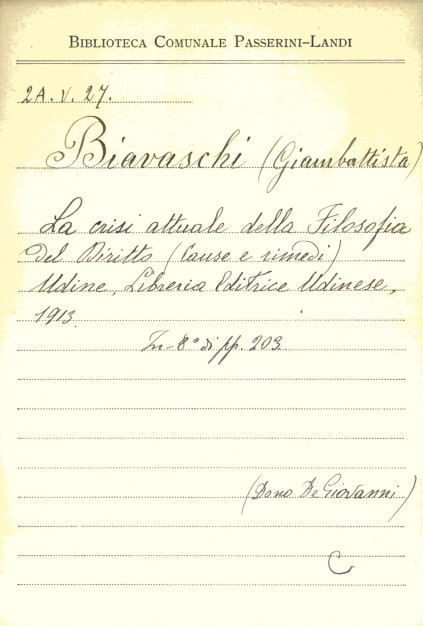 BIBLIOTECA COMUNALE PASSERINI-LANDI
2A. V. 27.
Biavaschi (Giambattista)
La crisi attuale della Filosofia
del Diritto (Cause e rimedi)
Udine, Libreria Editrice Udinese,
1913.
In-8° di pp. 203.
(Dono De Giovanni)
C